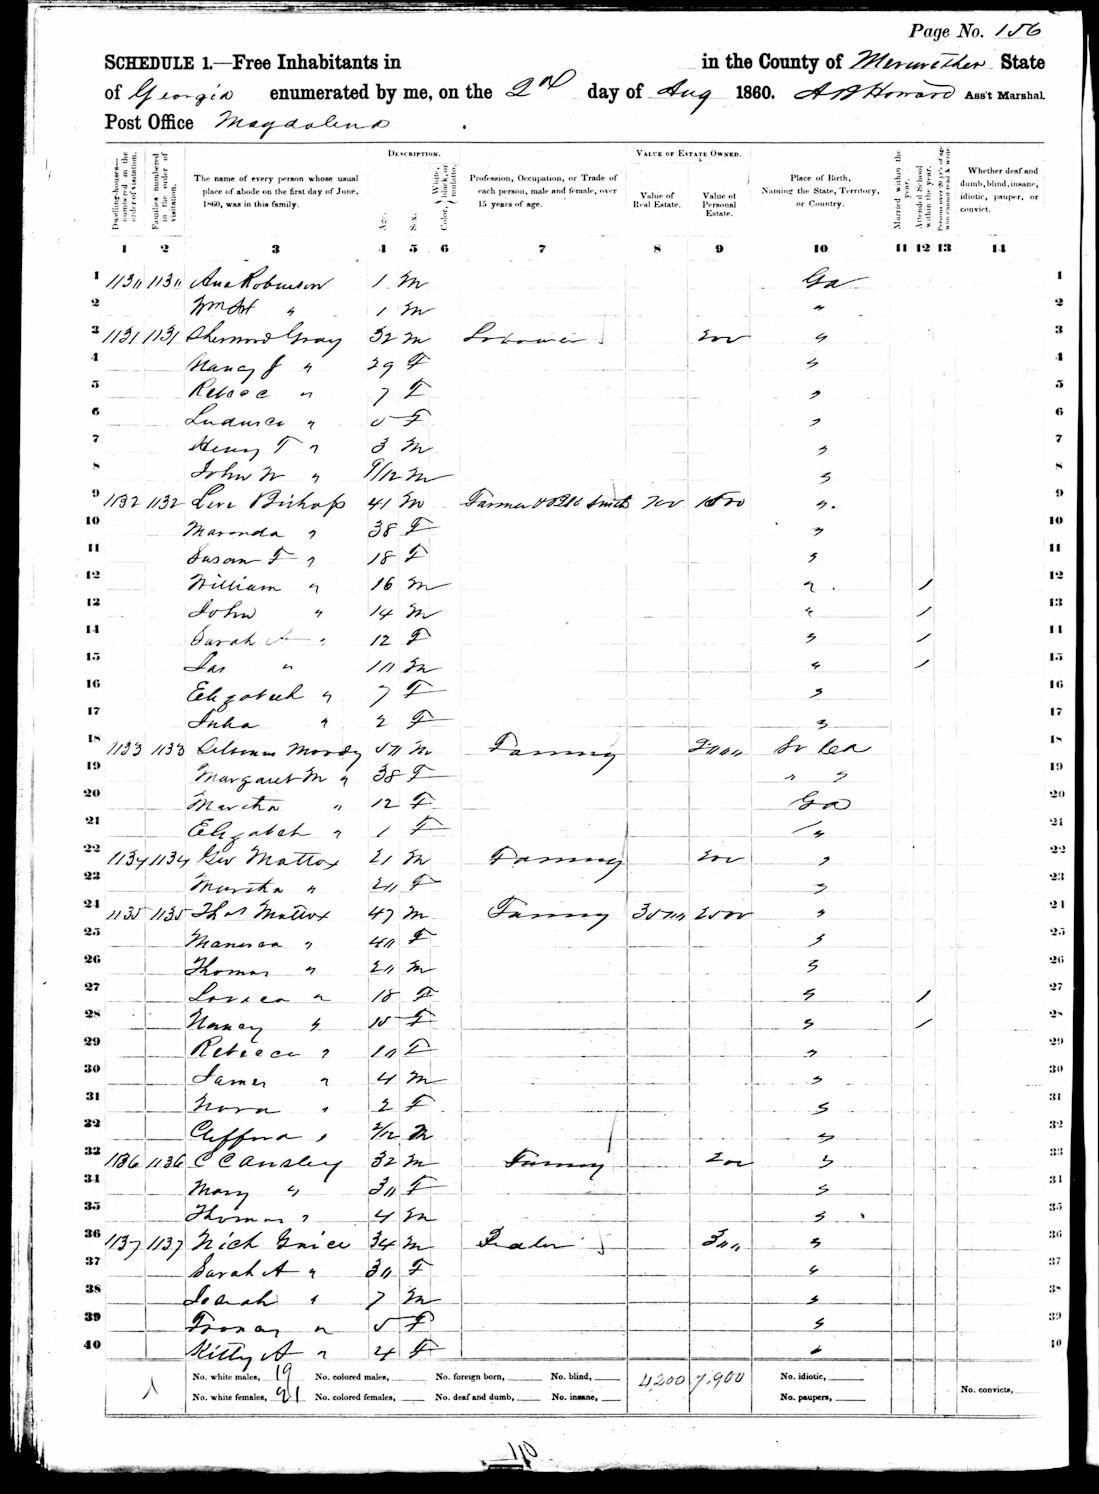 Page No. 156
SCHEDULE 1.—Free Inhabitants in in the County of Meriwether State
of Georgia enumerated by me, on the 2nd day of Aug 1860. A B Howard Ass't Marshal.
Post Office Magdalena
DESCRIPTION. VALUE OF ESTATE OWNED.
Dwelling-houses—numbered in the order of visitation. Families numbered in the order of visitation. The name of every person whose usual place of abode on the first day of June, 1860, was in this family. Age. Sex. Color, White, black, or mulatto. Profession, Occupation, or Trade of each person, male and female, over 15 years of age. Value of Real Estate. Value of Personal Estate. Place of Birth, Naming the State, Territory, or Country. Married within the year. Attended School within the year. Persons over 20 y'rs of age who cannot read & write. Whether deaf and dumb, blind, insane, idiotic, pauper, or convict.
1 2 3 4 5 6 7 8 9 10 11 12 13 14
1 1130 1130 Robinson 1 M Ga 1
2 Wm H " 1 M " 2
3 1131 1131 Gray 32 M 200 " 3
4 Nancy J " 29 F " 4
5 " 7 F " 5
6 " 5 F " 6
7 Henry T " 3 M " 7
8 John W " 9/12 M " 8
9 1132 1132 Levi Bishop 41 M Farmer & Blk Smith 700 1500 " 9
10 " 38 F " 10
11 Susan F " 18 F " 11
12 William " 16 M " / 12
13 John " 14 M " / 13
14 Sarah A " 12 F " / 14
15 Jas " 10 M " / 15
16 Elizabeth " 7 F " 16
17 Julia " 2 F " 17
18 1133 1133 Moody 50 M Farming 2000 So Ca 18
19 Margaret M " 38 F " " 19
20 Martha " 12 F Ga 20
21 Elizabeth " 1 F " 21
22 1134 1134 Geo Mattox 21 M Farming 200 " 22
23 Martha " 20 F " 23
24 1135 1135 Thos Mattox 47 M Farming 3500 2500 " 24
25 " 40 F " 25
26 Thomas " 20 M " 26
27 " 18 F " / 27
28 Nancy " 15 F " / 28
29 Rebecca " 10 F " 29
30 James " 4 M " 30
31 Nora " 2 F " 31
32 Clifford " 2/12 M " 32
33 1136 1136 C C Ansley 32 M Farming 200 " 33
34 Mary " 30 F " 34
35 Thomas " 4 M " 35
36 1137 1137 Nich Grice 34 M 300 " 36
37 Sarah A " 30 F " 37
38 Josiah " 7 M " 38
39 " 5 F " 39
40 Kitty A " 4 F " 40
No. white males, 19 No. colored males, No. foreign born, No. blind, 4200 7,900 No. idiotic,
No. white females, 21 No. colored females, No. deaf and dumb, No. insane, No. paupers, No. convicts,